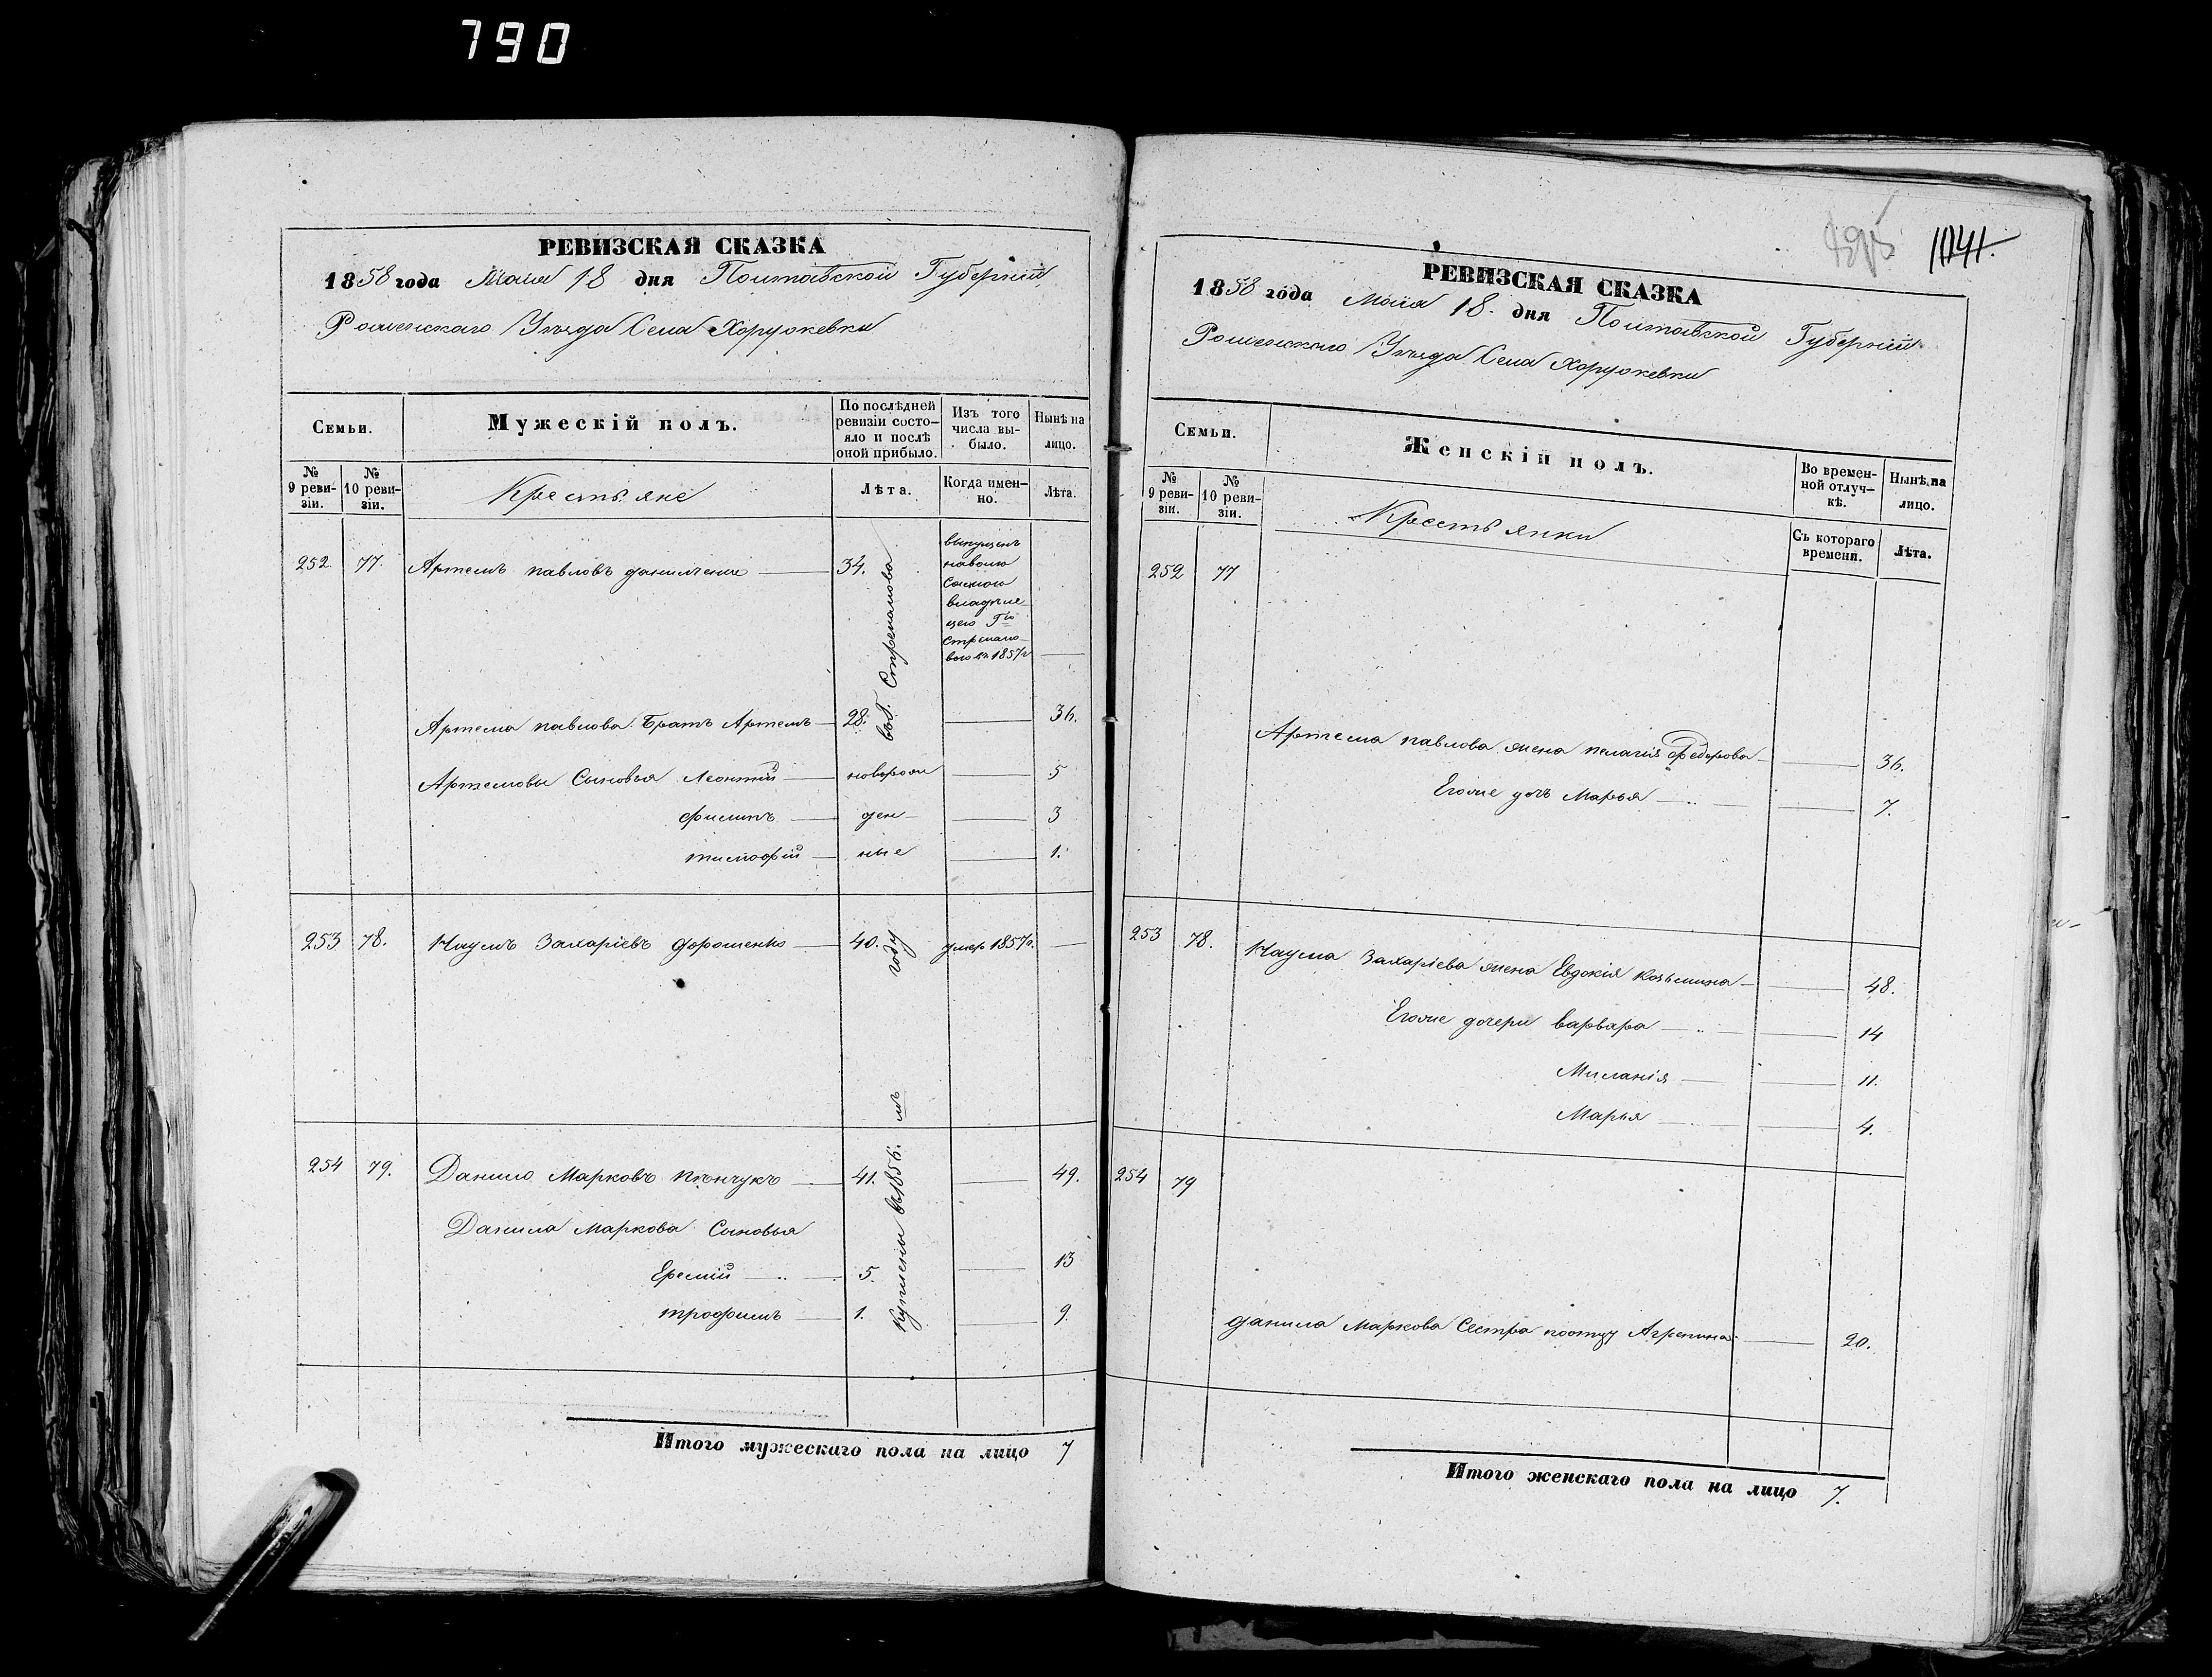 790
РЕВИЗСКАЯ СКАЗКА
1858 года Мая 18 дня Полтавской Губерніи
Роменскаго Уѣзда Села Хоружевки
Семьи.
Мужескій полъ.
По послѣдней ревизіи состояло и послѣ оной прибыло.
Изъ того числа выбыло.
Нынѣ на лицо.
№ 9 ревизіи.
№ 10 ревизіи.
Крестьяне
Лѣта.
Когда именно.
Лѣта.
252. 77. Артемъ павловъ 34.
выпущенъ
наволю
владѣле
цею
1857г
Артема павлова Братъ Артемъ 28. 36.
Артемовы Сыновья Леонтій новорож 5
филипъ ден 3
тимофій ные 1.
253 78. Наумъ Захаріевъ дорошенко 40. умер 1857г.
254 79. Данило Марковъ 41. 49.
Данила Маркова Сыновья
Еремій 5. 13
трофимъ 1. 9.
Куплены въ 1856. году
Итого мужескаго пола на лицо 7
1041.
РЕВИЗСКАЯ СКАЗКА
1858 года Мая 18. дня Полтавской Губерніи
Роменскаго Уѣзда Села Хоружевки
Семьи.
Женскій полъ.
Во временной отлучкѣ.
Нынѣ на лицо.
№ 9 ревизіи.
№ 10 ревизіи.
Крестьянки
Съ котораго времени.
Лѣта.
252 77
Артема павлова жена пелагия федорова 36.
Егоже дочь Марья 7.
253 78. Наума Захаріева жена Евдокія козьмина 48.
Егоже дочери варвара 14
Миланія 11.
Марья 4.
254 79
данила Маркова Сестра поотцу Агрепина 20.
Итого женскаго пола на лицо 7.